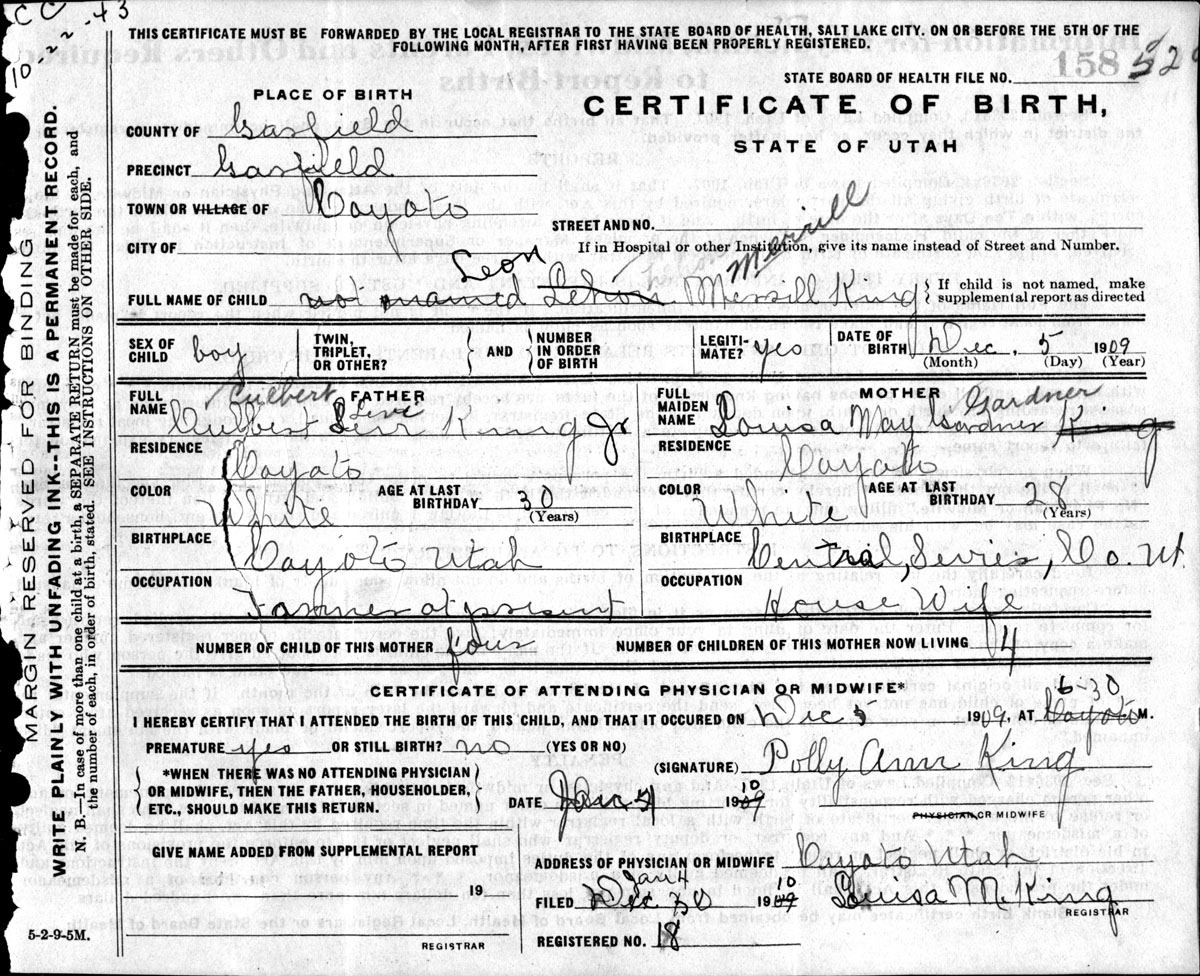 CC .43
10-22
THIS CERTIFICATE MUST BE FORWARDED BY THE LOCAL REGISTRAR TO THE STATE BOARD OF HEALTH, SALT LAKE CITY. ON OR BEFORE THE 5TH OF THE
FOLLOWING MONTH, AFTER FIRST HAVING BEEN PROPERLY REGISTERED.
STATE BOARD OF HEALTH FILE NO. 158
PLACE OF BIRTH
CERTIFICATE OF BIRTH,
STATE OF UTAH
COUNTY OF Garfield
PRECINCT Garfield
TOWN OR VILLAGE OF Cayoto
STREET AND NO.
CITY OF
If in Hospital or other Institution, give its name instead of Street and Number.
Leon Merrill
FULL NAME OF CHILD not named Leron Merrill King
If child is not named, make
supplemental report as directed
SEX OF CHILD boy
TWIN, TRIPLET, OR OTHER?
AND
NUMBER IN ORDER OF BIRTH
LEGITIMATE? yes
DATE OF BIRTH Dec. 5 1909
(Month) (Day) (Year)
FATHER
Culbert Levi
FULL NAME Culbert Levi King Jr
RESIDENCE Cayoto
COLOR White
AGE AT LAST BIRTHDAY 30
(Years)
BIRTHPLACE Cayoto Utah
OCCUPATION Farmer at present
MOTHER
Gardner
FULL MAIDEN NAME Louisa May Gardner King
RESIDENCE Cayoto
COLOR White
AGE AT LAST BIRTHDAY 28
(Years)
BIRTHPLACE Central, Sevier, Co. Ut.
OCCUPATION House Wife
NUMBER OF CHILD OF THIS MOTHER four
NUMBER OF CHILDREN OF THIS MOTHER NOW LIVING 4
CERTIFICATE OF ATTENDING PHYSICIAN OR MIDWIFE*
6-30
I HEREBY CERTIFY THAT I ATTENDED THE BIRTH OF THIS CHILD, AND THAT IT OCCURED ON Dec 5 1909, AT Cayoto M.
PREMATURE yes OR STILL BIRTH? no (YES OR NO)
(SIGNATURE) Polly Ann King
*WHEN THERE WAS NO ATTENDING PHYSICIAN
OR MIDWIFE, THEN THE FATHER, HOUSEHOLDER,
ETC., SHOULD MAKE THIS RETURN.
DATE Jan 4 1909 10
PHYSICIAN, OR MIDWIFE
GIVEN NAME ADDED FROM SUPPLEMENTAL REPORT
19
REGISTRAR
ADDRESS OF PHYSICIAN OR MIDWIFE Cayoto Utah
Jan 4 10
FILED Dec 30 1909 Louisa M. King
REGISTRAR
REGISTERED NO. 18
5-2-9-5M.
MARGIN RESERVED FOR BINDING
WRITE PLAINLY WITH UNFADING INK--THIS IS A PERMANENT RECORD.
N. B.—In case of more than one child at a birth, a SEPARATE RETURN must be made for each, and
the number of each, in order of birth, stated. SEE INSTRUCTIONS ON OTHER SIDE.